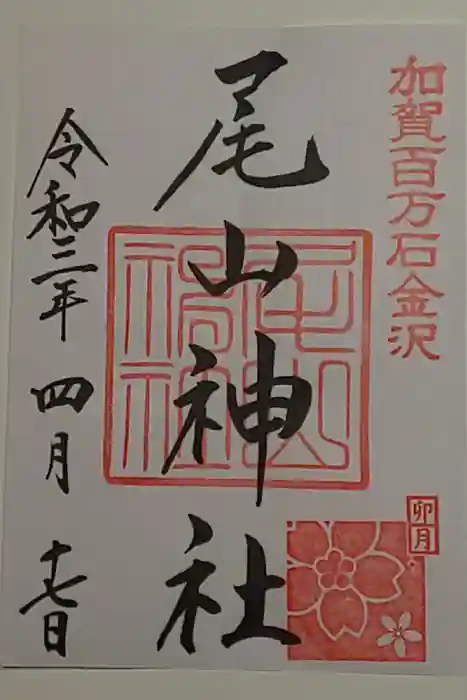 加賀百万石金沢
尾山神社
尾山神社
卯月
令和三年 四月 十七日